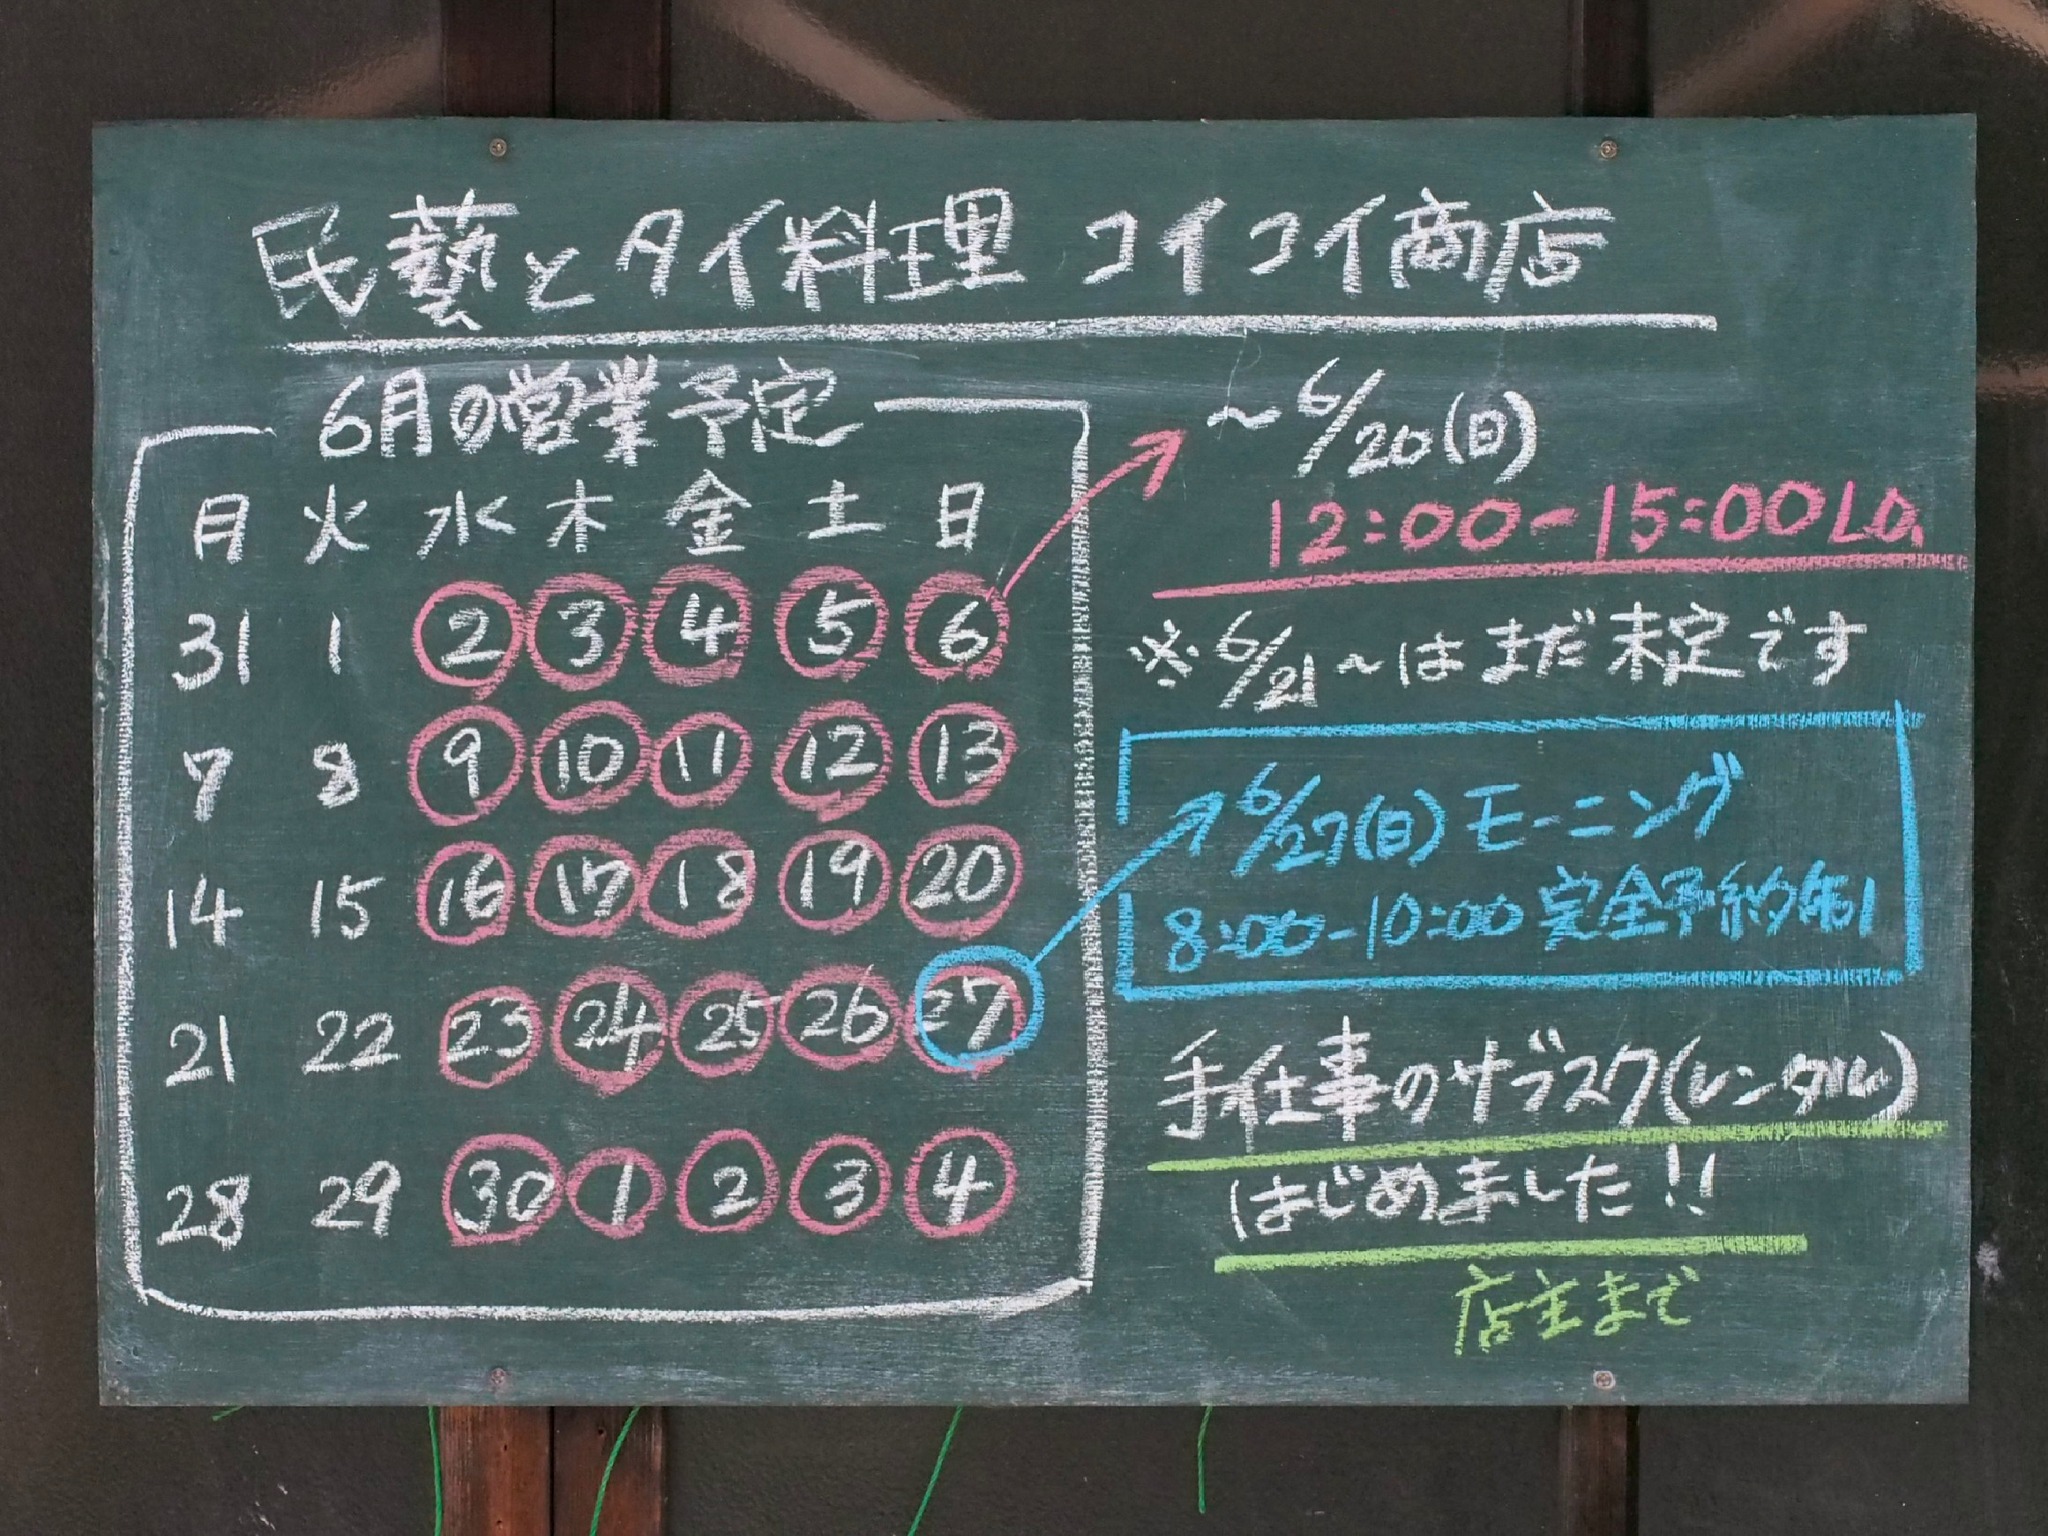 民藝とタイ料理 コイコイ商店
6月の営業予定
月 火 水 木 金 土 日
31 1 2 3 4 5 6
7 8 9 10 11 12 13
14 15 16 17 18 19 20
21 22 23 24 25 26 27
28 29 30 1 2 3 4
～6/20(日)
12:00-15:00 L.O.
※6/21～はまだ未定です
6/27(日)モーニング
8:00-10:00 完全予約制
手仕事のサブスク(レンタル)
はじめました!!
店主まで